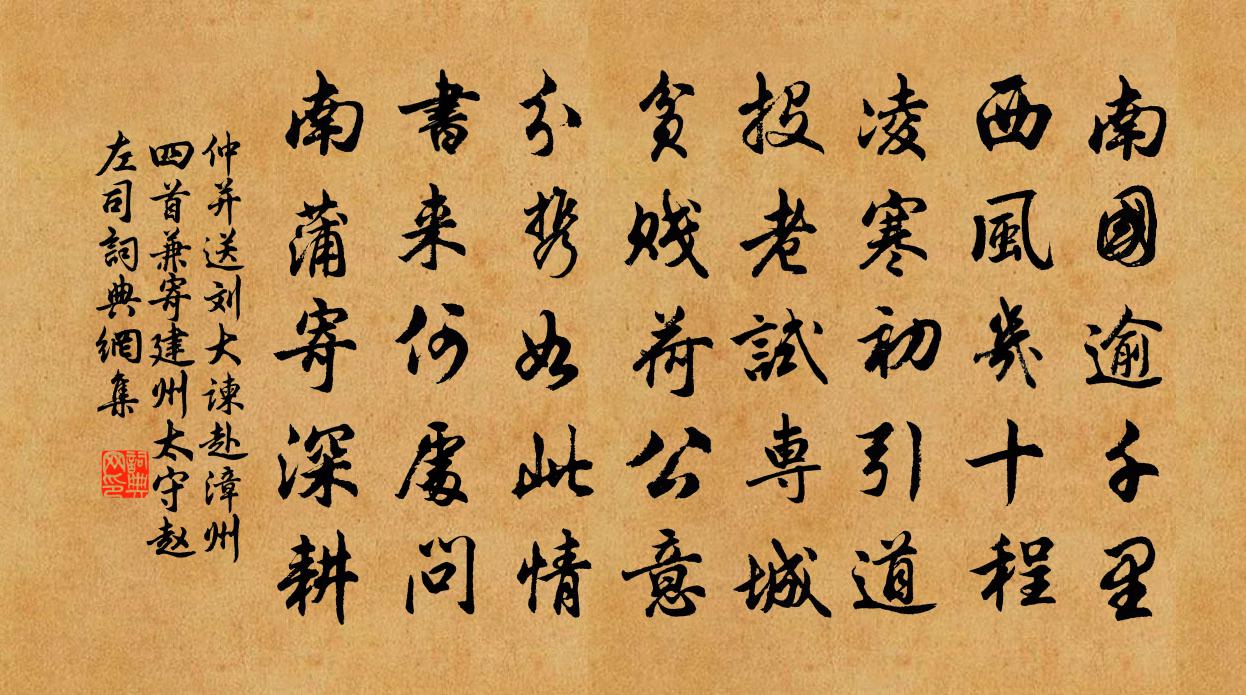 南國逾千里
西風幾十程
凌寒初引道
投老試專城
貧賤荷公意
分携如此情
書来何處問
南蒲寄深耕
仲并送刘大諫赴漳州
四首兼寄建州太守赵
左司詞典網集
詞典网印